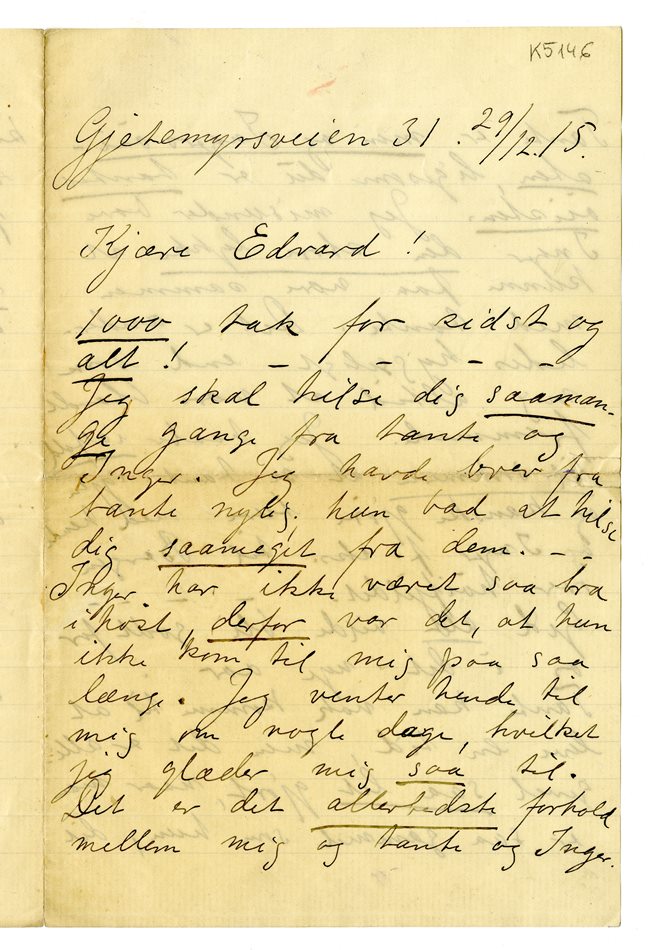 K5146
Gjetemyrsveien 31. 29/12.15.
Kjære Edvard!
1000 tak for sidst og
alt! – – – –
Jeg skal hilse dig saaman-
ge gange fra tante og
Inger. Jeg havde brev fra
tante nylig, hun bad at hilse
dig saameget fra dem. – –
Inger har ikke været saa bra
i høst, derfor var det, at hun
ikke kom til mig paa saa
længe. Jeg venter hende til
mig om nogle dage, hvilket
jeg glæder mig saa til.
Det er det allerbedste forhold
mellem mig og tante og Inger.